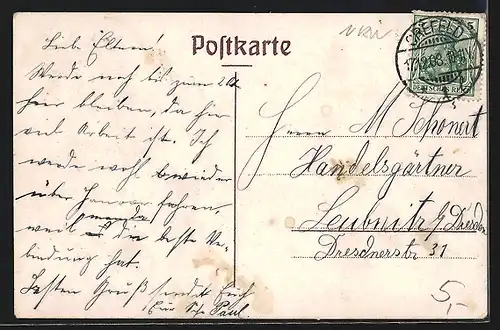 Postkarte
CREFELD
17.12.08.
5
Liebe Eltern!
Werde noch bis zum 20.
hier bleiben, da hier
viel Arbeit ist. Ich
werde wohl wieder
über Hannover fahren,
weil die beste Ver-
bindung hat.
Besten Gruß sendet Euch
Euer Paul
Herrn M Schonert
Handelsgärtner
Leubnitz b/Dresden
Dresdnerstr 31
5,-